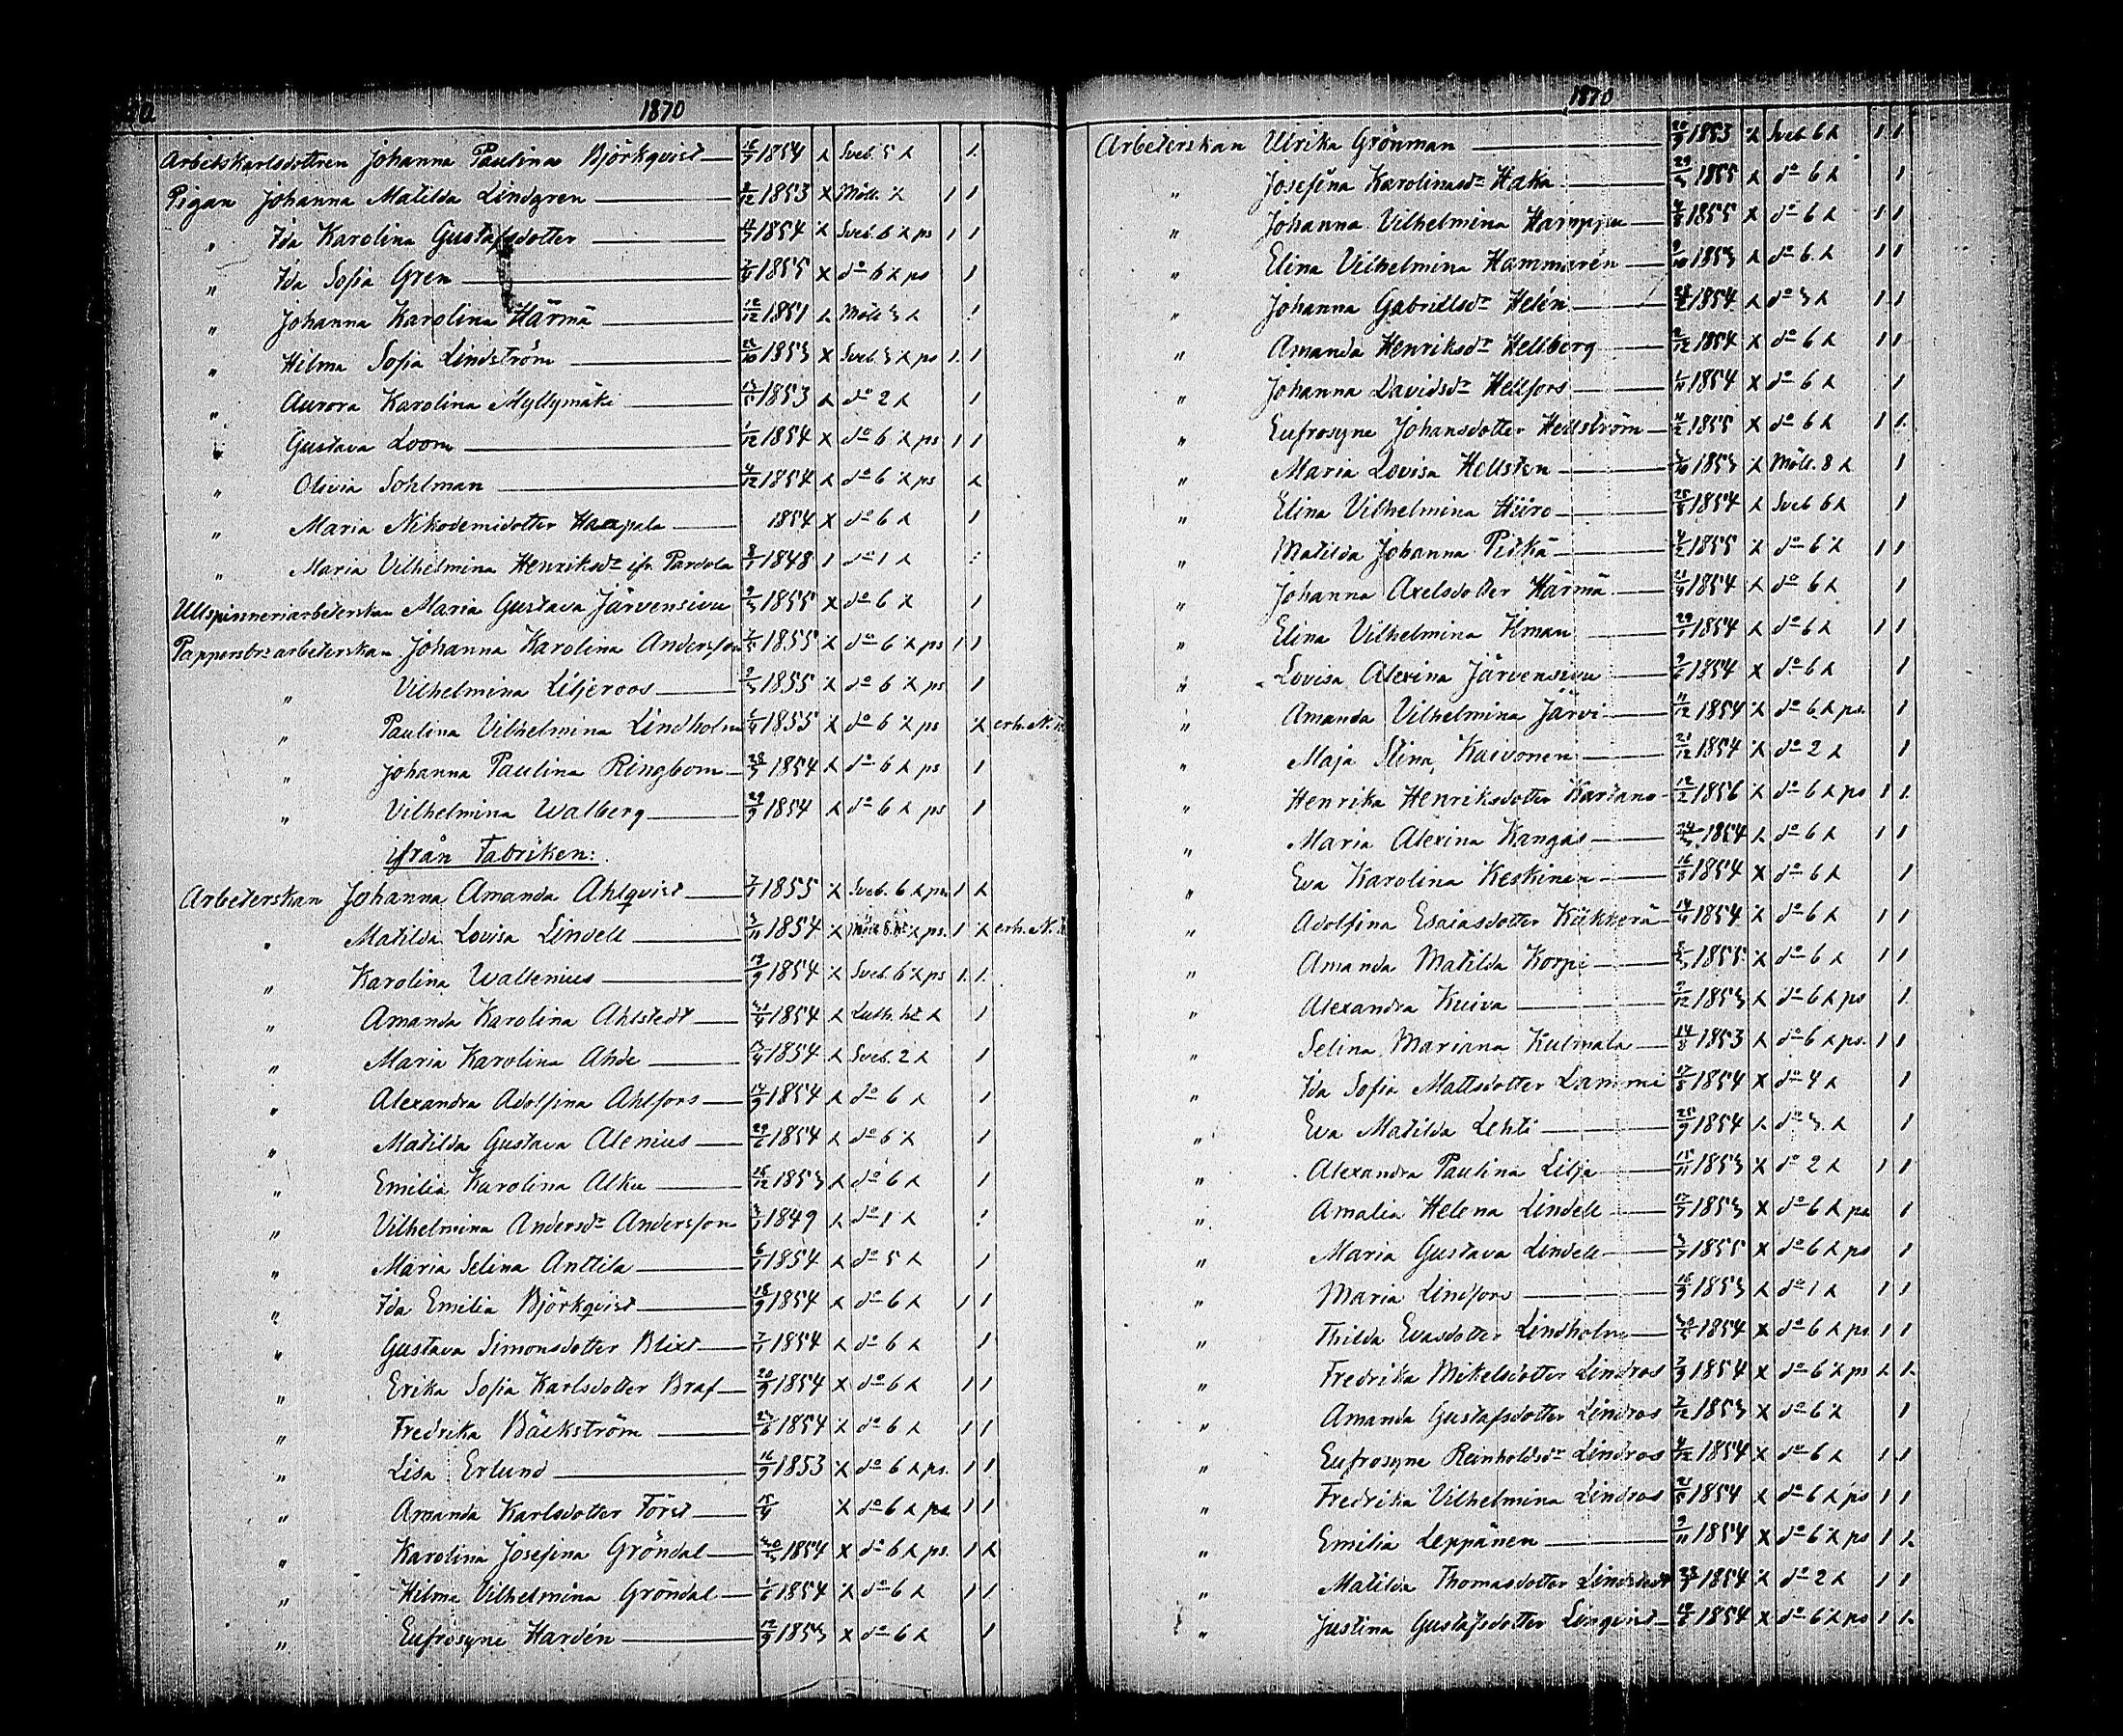 1870
Arbetskarlsdottren Johanna Paulina Björkqvist 16/9 1854 x Sveb. 5 x 1
Pigan Johanna Matilda Lindgren 8/12 1853 x Möll. x 1 1
" Ida Karolina Gustafsdotter 1854 x Sveb. 6 x ps 1 1
" Ida Sofia Gren 1855 x do 6 x ps 1
" Johanna Karolina Härmä 12/12 1851 x Möll 3 x 1
" Hilma Sofia Lindström 22/10 1853 x Sveb. 3 x ps 1 1
" Aurora Karolina Myllymäki 1853 x do 2 x 1
" Gustava Loom 1/12 1854 x do 6 x ps 1 1
" Olivia Sohlman 4/12 1854 x do 6 x ps x
" Maria Nikodemidotter Haapala 1854 x do 6 x 1
" Maria Vilhelmina Henriksdr ifr. Pardola 1848 1 do 1 x
Ullspinneriarbeterskan Maria Gustava Järvensivu 9/3 1855 x do 6 x 1
Pappersbr:arbeterskan Johanna Karolina Andersson 1855 x do 6 x ps 1 1
" Vilhelmina Liljeroos 9/3 1855 x do 6 x ps 1
" Paulina Vilhelmina Lindholm 1855 x do 6 x ps x erh. N.
" Johanna Paulina Ringbom 1854 x do 6 x ps 1
" Vilhelmina Walberg 29/9 1854 x do 6 x ps 1
ifrån Fabriken:
Arbeterskan Johanna Amanda Ahlqvist 7/1 1855 x Sveb. 6 x ps 1 x
" Matilda Lovisa Lindell 3/11 1854 x x ps. 1 x erh. N.
" Karolina Waltenius 19/9 1854 x Sveb. 6 x ps 1 1
" Amanda Karolina Ahlstedt 1854 x Luth. x 1
" Maria Karolina Ahde 1854 x Sveb. 2 x 1
" Alexandra Adolfina Ahlfors 14/9 1854 x do 6 x 1
" Matilda Gustava Alenius 29/6 1854 x do 6 x 1
" Emilia Karolina Alku 16/12 1853 x do 6 x 1
" Vilhelmina Andersdr Andersson 1849 x do 1 x
" Maria Selina Anttila 1854 x do 5 x 1
" Ida Emilia Björkqvist 18/9 1854 x do 6 x 1 1
" Gustava Simonsdotter Blixt 7/1 1854 x do 6 x 1
" Erika Sofia Karlsdotter Braf 20/9 1854 x do 6 x 1 1
" Fredrika Bäckström 1854 x do 6 x 1 1
" Lisa Erlund 16/9 1853 x do 6 x ps. 1 1
" Amanda Karlsdotter Först 15/4 x do 6 x ps 1 1
" Karolina Josefina Gröndal 30/3 1854 x do 6 x ps. 1 x
" Hilma Vilhelmina Gröndal 1/6 1854 x do 6 x 1 1
" Eufrosyne Hardén 12/9 1853 x do 6 x 1
1870
Arbeterskan Ulrika Grönman 20/9 1853 x Sveb 6 x 1 1
" Josefina Karolinasdr Haka 29/3 1855 x do 6 x 1
" Johanna Vilhelmina Hamppu 1855 x do 6 x 1 1
" Elina Vilhelmina Hammarén 9/10 1853 x do 6 x 1 1
" Johanna Gabrielsdr Helén 1854 x do 3 x 1 1
" Amanda Henriksdr Hellberg 1854 x do 6 x 1 1
" Johanna Davidsdr Hellfors 1854 x do 6 x 1
" Eufrosyne Johansdotter Hellström 1855 x do 6 x 1 1
" Maria Lovisa Hellsten 3/10 1853 x Möll. 8 x 1
" Elina Vilhelmina Hiiro 1854 x Sveb 6 x 1
" Matilda Johanna Pitkä 1855 x do 6 x 1 1
" Johanna Axelsdotter Härmä 1854 x do 6 x 1
" Elina Vilhelmina Ilman 1854 x do 6 x 1 1
" Lovisa Alexina Järvensivu 1854 x do 6 x 1
" Amanda Vilhelmina Järvi 11/12 1854 x do 6 x ps. 1
" Maja Stina Kaivonen 21/12 1854 x do 2 x 1
" Henrika Henriksdotter Kartano 12/2 1856 x do 6 x ps 1 1
" Maria Alexina Kangas 24/3 1854 x do 6 x 1 1
" Eva Karolina Keskinen 1854 x do 6 x 1
" Adolfina Esaiasdotter Kiikkerä 1854 x do 6 x 1 1
" Amanda Matilda Korpi 1855 x do 6 x 1 1
" Alexandra Kuiva 9/12 1853 x do 6 x ps 1
" Selina Mariana Kulmala 14/8 1853 x do 6 x ps. 1 1
" Ida Sofia Mattsdotter Lammi 1854 x do 4 x 1
" Eva Matilda Lehti 25/9 1854 x do 3 x 1
" Alexandra Paulina Lilja 15/11 1853 x do 2 x 1 1
" Amalia Helena Lindell 1853 x do 6 x ps 1
" Maria Gustava Lindell 1855 x do 6 x ps 1
" Maria Lindfors 16/9 1853 x do 1 x 1 1
" Thilda Evasdotter Lindholm 1854 x do 6 x ps. 1 1
" Fredrika Mikelsdotter Lindros 7/9 1854 x do 6 x ps x 1
" Amanda Gustafsdotter Lindros 7/12 1853 x do 6 x 1
" Eufrosyne Reinholdsdr Lindros 4/12 1854 x do 6 x 1 1
" Fredrika Vilhelmina Lindros 1854 x do 6 x ps 1 1
" Emilia Leppänen 9/11 1854 x do 6 x ps 1 1
" Matilda Thomasdotter Lindstedt 1854 x do 2 x 1 1
" Justina Gustafsdotter Linqvist 1854 x do 6 x ps 1 1